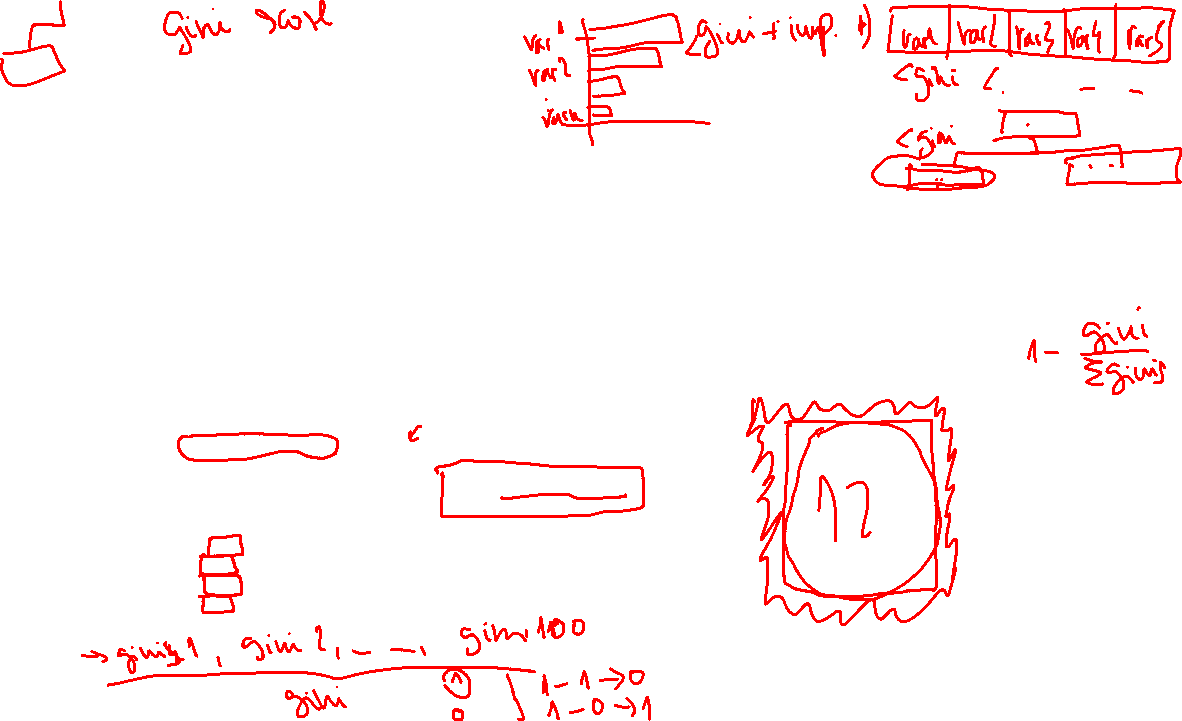 gini score
var 1
var2
varn
<gini + imp.
var1 var2 var3 var4 var5
<gini <. - -
<gini
1 - gini
Σginis
12
→ gini 1, gini 2, - - -, gini 100
gini
1
0
1 - 1 → 0
1 - 0 → 1